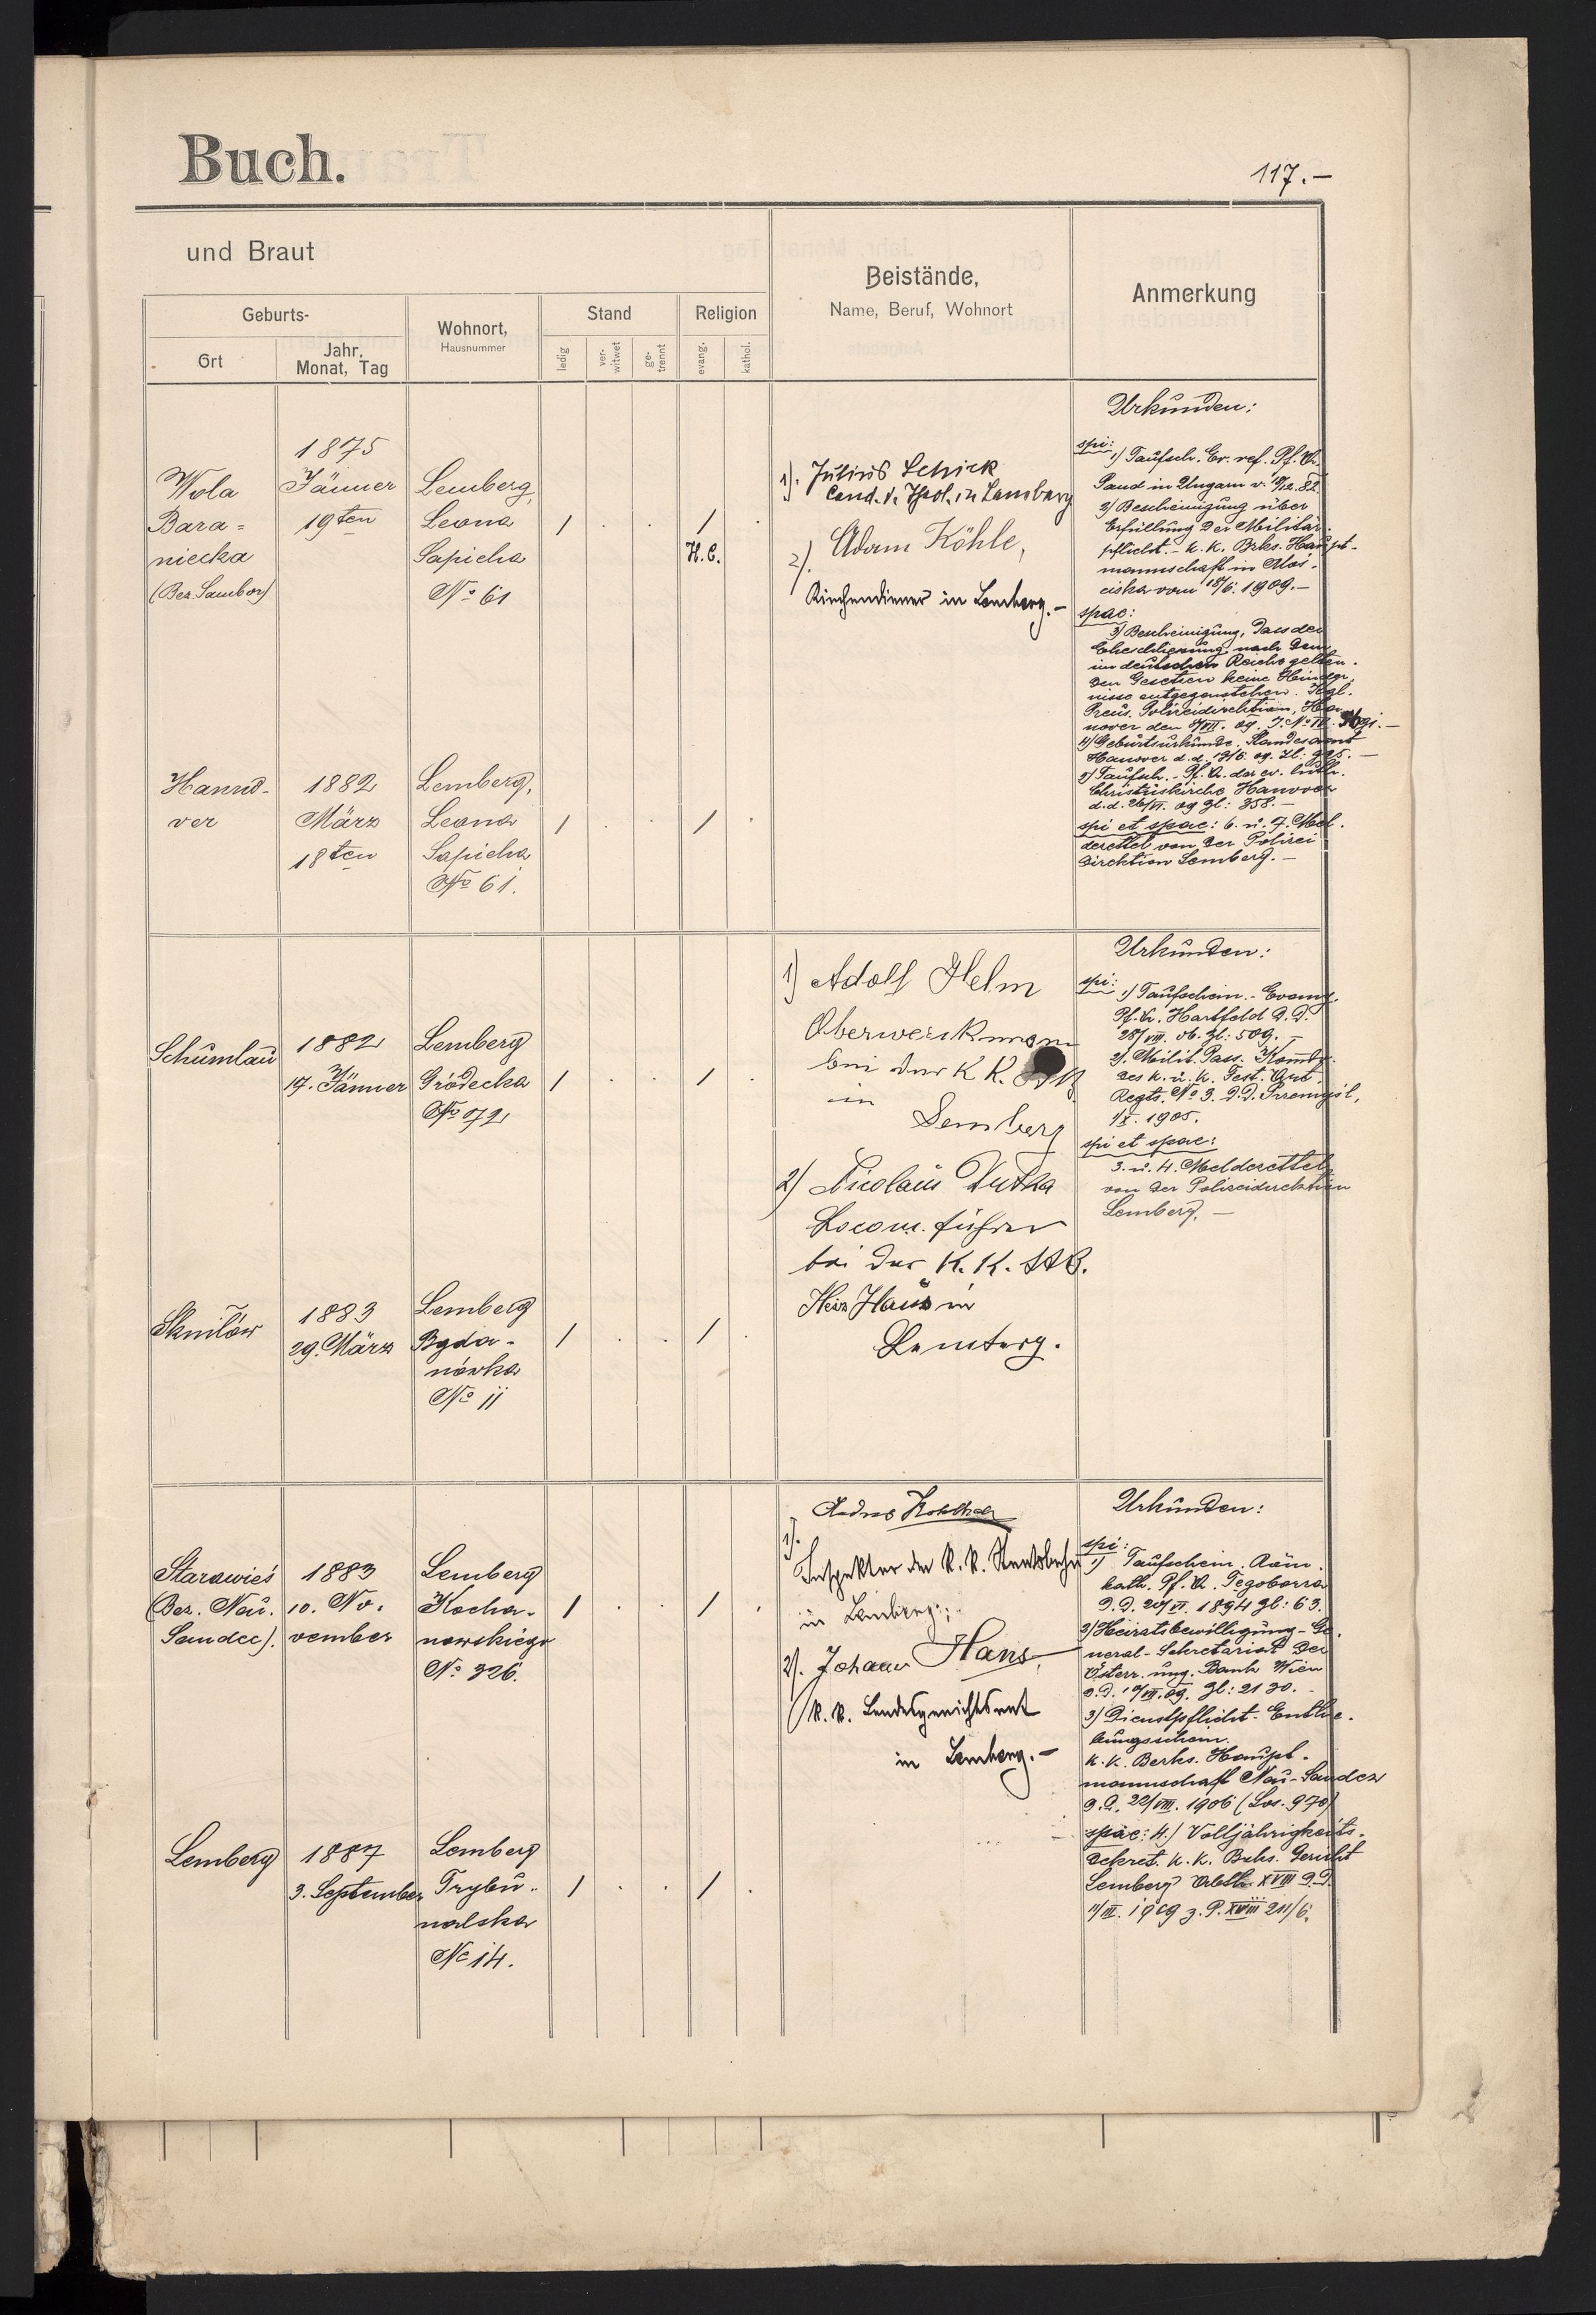 Buch.
117.—
und Braut
Geburts-
Ort
Jahr, Monat, Tag
Wohnort,
Hausnummer
Stand
ledig
ver-witwet
ge-trennt
Religion
evang.
kathol.
Beistände,
Name, Beruf, Wohnort
Anmerkung
Wola
Bara=
niecka
(Bez. Sambor)
1875
Jänner
19ten
Lemberg,
Leona
Sapieha
No 61
/ . . / .
H.C.
1). Julius Schick
Cand. d. Theol. in Lemberg
2). Adam Köhle,
Kirchendiener in Lemberg.—
Urkunden:
spi:
1) Taufsch. Ev. ref. Pf. A.
in Ungarn v.
2) Bescheinigung über
Erfüllung der Militär-
pflicht. - k. k. Brks. Haupt-
mannschaft in Mos-
ciska vom 18/6. 1909.—
spae:
3) Bescheinigung, dass der
Eheschliessung nach dem
im deutschen Reiche gelten-
den Gesetzen keine Hinder-
nisse entgegenstehen. Kgl.
Preus. Polizeidirektion, Han-
nover den
4) Geburtsurkunde. Standesamt
Hanover d. d.
5) Taufsch. - Pf. A. der ev. luth.
Christuskirche Hanover
d. d. 26/VI. 09 Zl: 358.—
spi et spae: 6. u. 7. Mel-
dezettel von der Polizei
direktion Lemberg.—
Hanno-
ver
1882
März
18ten
Lemberg,
Leona
Sapieha
No 61.
/ . . / .
Schumlau
1882
17. Jänner
Lemberg
Gródecka
No 72
/ . . / .
1) Adolf Helm
Oberwerkmann
bei der K K.
in
Lemberg
2) Nicolaus Dutka
Locom. führer
bei der K. K. StB.
Heiz Haus in
Lemberg.
Urkunden:
spi:
1) Taufschein. - Evang.
Pf. A. Hartfeld d. d.
28/VIII. 06. Zl: 509.—
2). Milit. Pass. Komdo.
des k. u. k. Fest. Art.
Regts. No 3. d. d. Przemyśl,
1/X. 1905.
spi et spae:
3. u. 4. Meldezettel
von der Polizeidirektion
Lemberg.—
Sknilów
1883
29. März
Lemberg
Bgda-
nówka
No 11
/ . . / .
Starawieś
(Bez. Neu.
Sandec).
1883
10. No-
vember
Lemberg
Kocha-
nowskiego
No 326.
/ . . / .
1).
Inspektor der k. k. Staatsbahn
in Lemberg;
2). Johann Hans,
k. k. Landesgerichtsrat
in Lemberg.—
Urkunden:
spi:
1) Taufschein. Röm.
kath. Pf. A. Tęgoborza
d. d. 20/VI. 1894 Zl: 63.
2) Heiratsbewilligung - Ge-
neral-Sekretariat der
Österr. ung. Bank Wien
d. d. Zl: 2130.
3) Dienstpflicht-Enthe-
bungsschein.
k. k. Berks. Haupt-
mannschaft Neu-Sandez
d. d. 22/VIII. 1906 (Los. 970)
spae: 4.) Volljährigkeits-
dekret. k. k. Bzks. Gericht
Lemberg Abth. XVIII d. d.
1909 z. P. XVIII 211/6.
Lemberg
1887
3. September
Lemberg
Trybu-
nalska
No 14.
/ . . / .